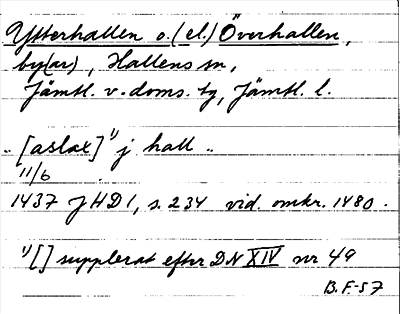 Ytterhallen o. (el.) Överhallen,
by(ar), Hallens sn,
Jämtl. v. doms. tg, Jämtl. l.
"[aslax]¹⁾ j hall"
11/6
1437 JHD 1, s. 234 vid. omkr. 1480.
¹⁾[] supplerat efter DN XIV nr 49
B.F-57